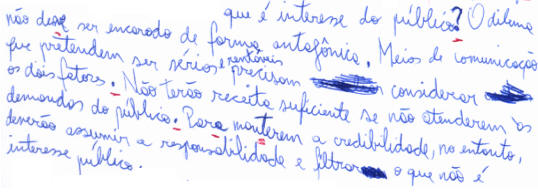 que é interesse do público? O dilema
não deve ser encarado de forma antagônica. Meios de comunicação
que pretendem ser sérios e rentáveis precisam considerar
os dois fatores. Não terão receita suficiente se não atenderem às
demandas do público. Para manterem a credibilidade, no entanto,
deverão assumir a responsabilidade e filtrar o que não é
interesse público.